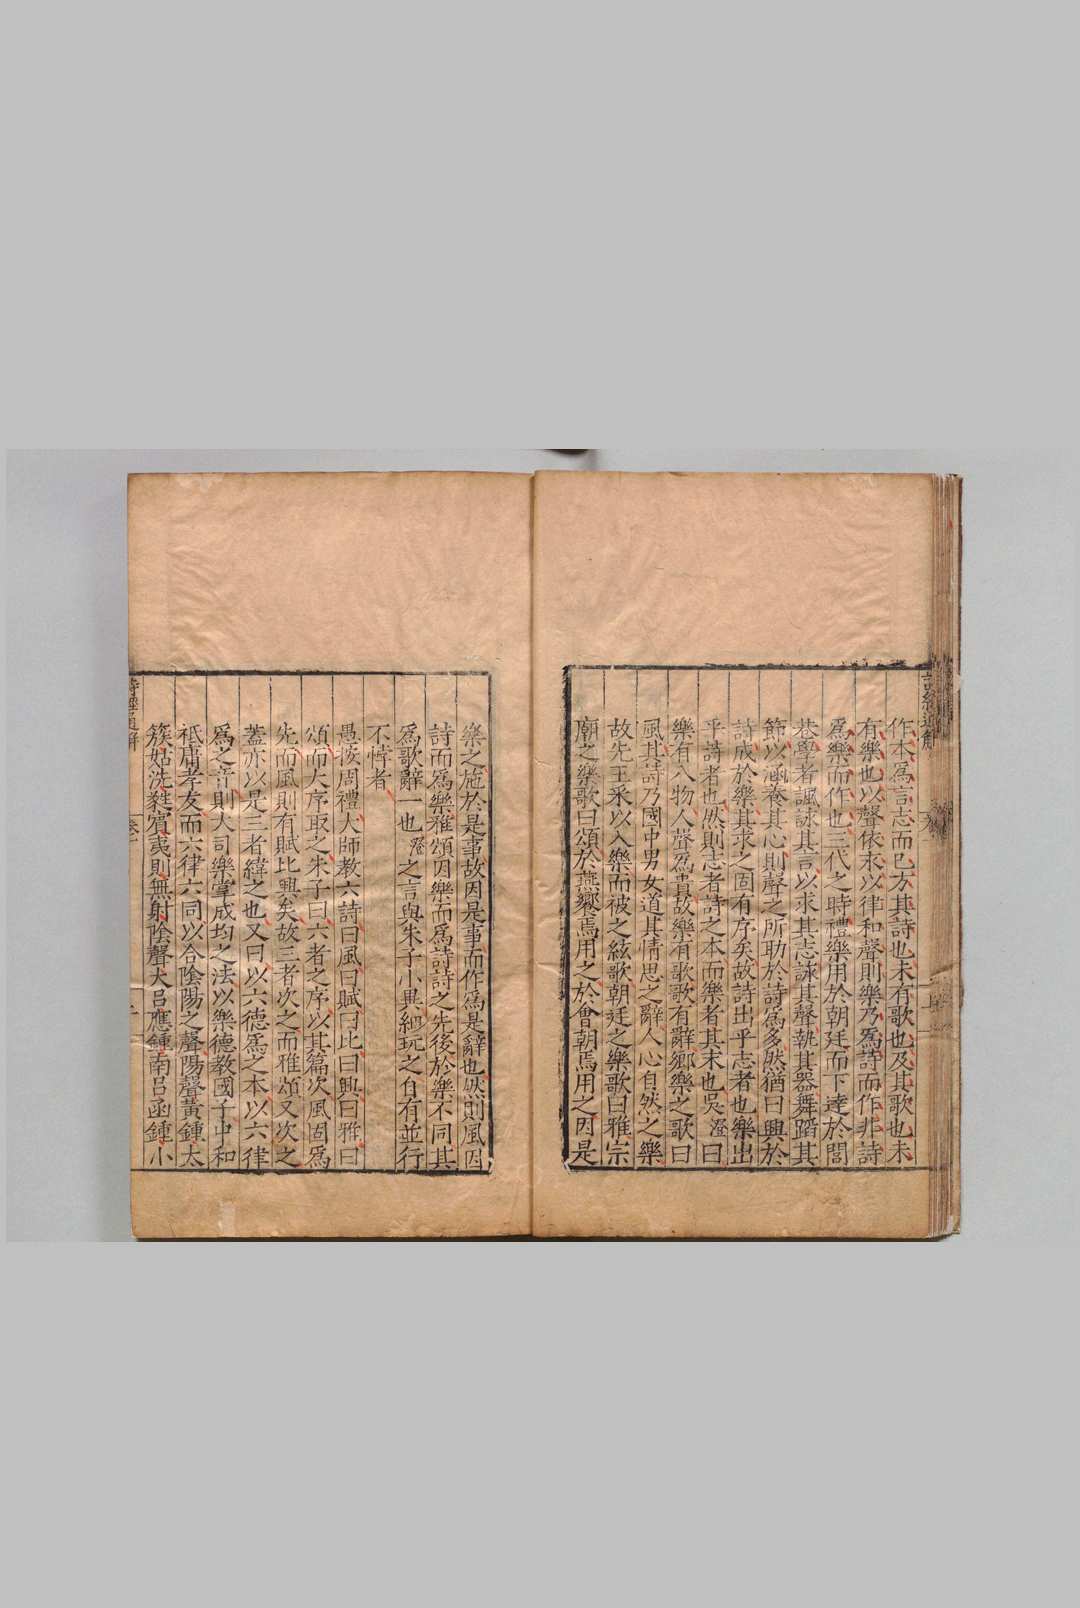 作本爲言志而已方其詩也未有歌也及其歌也未
有樂也以聲依永以律和聲則樂乃爲詩而作非詩
爲樂而作也三代之時禮樂用於朝廷而下達於閭
巷學者諷詠其言以求其志詠其聲執其器舞蹈其
節以涵養其心則聲之所助於詩爲多然猶曰興於
詩成於樂其求之固有序矣故詩出乎志者也樂出
乎詩者也然則志者詩之本而樂者其末也吳澄曰
樂有八物人聲爲貴故樂有歌歌有辭鄉樂之歌曰
風其詩乃國中男女道其情思之辭人心自然之樂
故先王采以入樂而被之絃歌朝廷之樂歌曰雅宗
廟之樂歌曰頌於燕饗焉用之於會朝焉用之因是
樂之施於是事故因是事而作爲是辭也然則風因
詩而爲樂雅頌因樂而爲詩詩之先後於樂不同其
爲歌辭一也澄之言與朱子小異細玩之自有並行
不悖者
愚按周禮大師教六詩曰風曰賦曰比曰興曰雅曰
頌而大序取之朱子曰六者之序以其篇次風固爲
先而風則有賦比興矣故三者次之而雅頌又次之
蓋亦以是三者緯之也又曰以六德爲之本以六律
爲之音則大司樂掌成均之法以樂德教國子中和
祗庸孝友而六律六同以合陰陽之聲陽聲黃鍾太
簇姑洗蕤賓夷則無射陰聲大呂應鍾南呂函鍾小
詩經通解 卷一